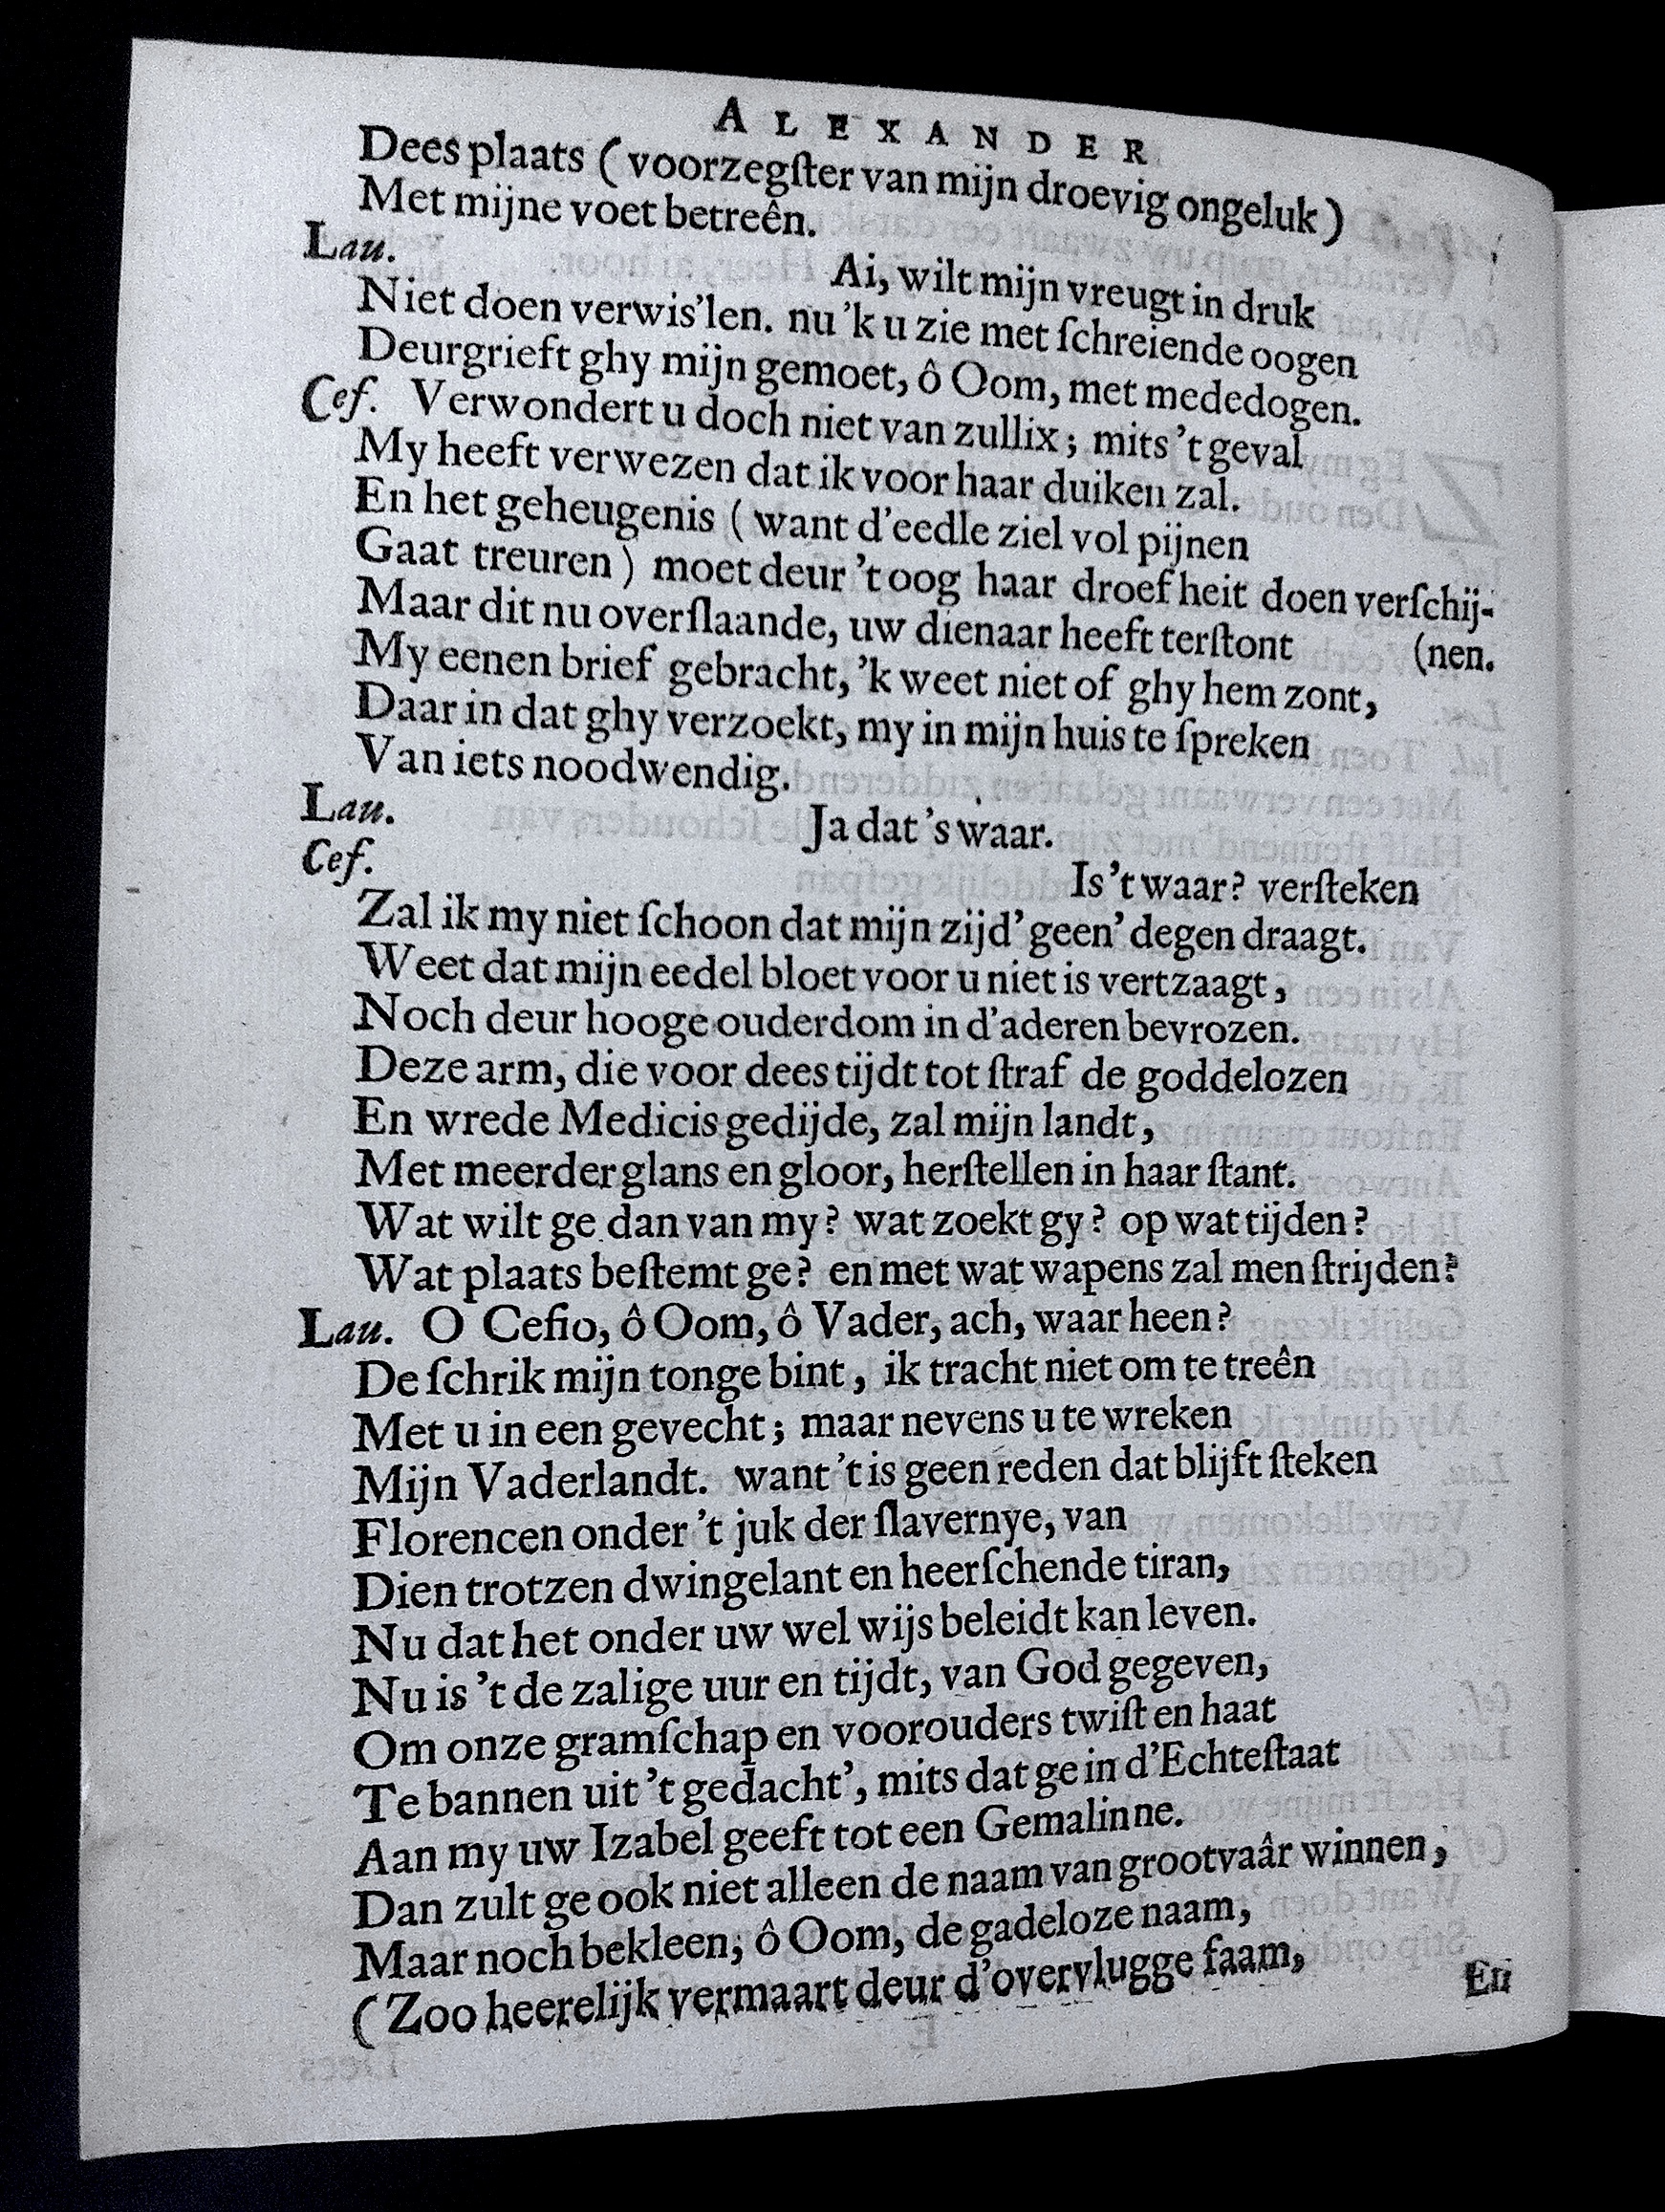 ALEXANDER
Dees plaats (voorzegſter van mijn droevig ongeluk)
Met mijne voet betreên.
Lau. Ai, wilt mijn vreugt in druk
Niet doen verwis'len. nu 'k u zie met ſchreiende oogen
Deurgrieft ghy mijn gemoet, ô Oom, met mededogen.
Ceſ. Verwondert u doch niet van zullix; mits 't geval
My heeft verwezen dat ik voor haar duiken zal.
En het geheugenis (want d'eedle ziel vol pijnen
Gaat treuren) moet deur 't oog haar droefheit doen verſchij-
Maar dit nu overſlaande, uw dienaar heeft terſtont (nen.
My eenen brief gebracht, 'k weet niet of ghy hem zont,
Daar in dat ghy verzoekt, my in mijn huis te ſpreken
Van iets noodwendig.
Lau. Ja dat 's waar.
Ceſ. Is 't waar? verſteken
Zal ik my niet ſchoon dat mijn zijd' geen' degen draagt.
Weet dat mijn eedel bloet voor u niet is vertzaagt,
Noch deur hooge ouderdom in d'aderen bevrozen.
Deze arm, die voor dees tijdt tot ſtraf de goddelozen
En wrede Medicis gedijde, zal mijn landt,
Met meerder glans en gloor, herſtellen in haar ſtant.
Wat wilt ge dan van my? wat zoekt gy? op wat tijden?
Wat plaats beſtemt ge? en met wat wapens zal men ſtrijden?
Lau. O Ceſio, ô Oom, ô Vader, ach, waar heen?
De ſchrik mijn tonge bint, ik tracht niet om te treên
Met u in een gevecht; maar nevens u te wreken
Mijn Vaderlandt. want 't is geen reden dat blijft ſteken
Florencen onder 't juk der ſlavernye, van
Dien trotzen dwingelant en heerſchende tiran,
Nu dat het onder uw wel wijs beleidt kan leven.
Nu is 't de zalige uur en tijdt, van God gegeven,
Om onze gramſchap en voorouders twiſt en haat
Te bannen uit 't gedacht', mits dat ge in d'Echteſtaat
Aan my uw Izabel geeft tot een Gemalinne.
Dan zult ge ook niet alleen de naam van grootvaâr winnen,
Maar noch bekleen, ô Oom, de gadeloze naam,
(Zoo heerelijk vermaart deur d'overvlugge faam,
En